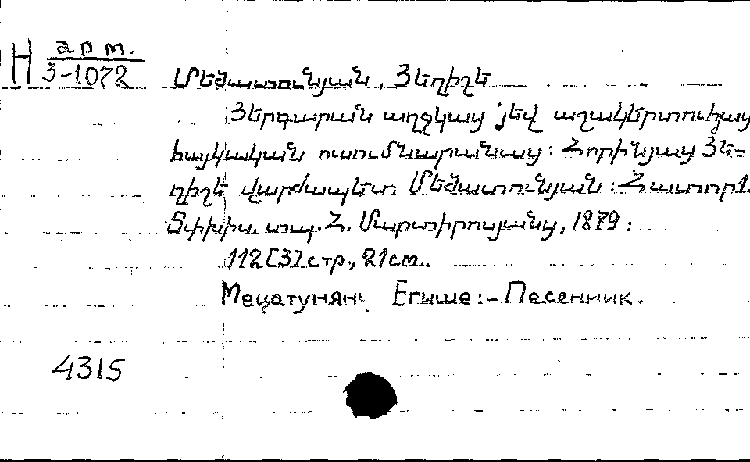 H арт.
3-1072
Մեծատունյան, Յեղիշե
Յերգարան աղջկայ յեվ աշակերտուհյաց
հայկական ուսումնարանաց: Հորինյաց Յե-
ղիշե վարժապետ Մեծատունյան: Հատոր 1.
Տփխիս. տպ. Հ. Մարտիրոսյանց, 1879:
112[3]стр., 21см.
Мецатунян, Егише:-Песенник.
4315